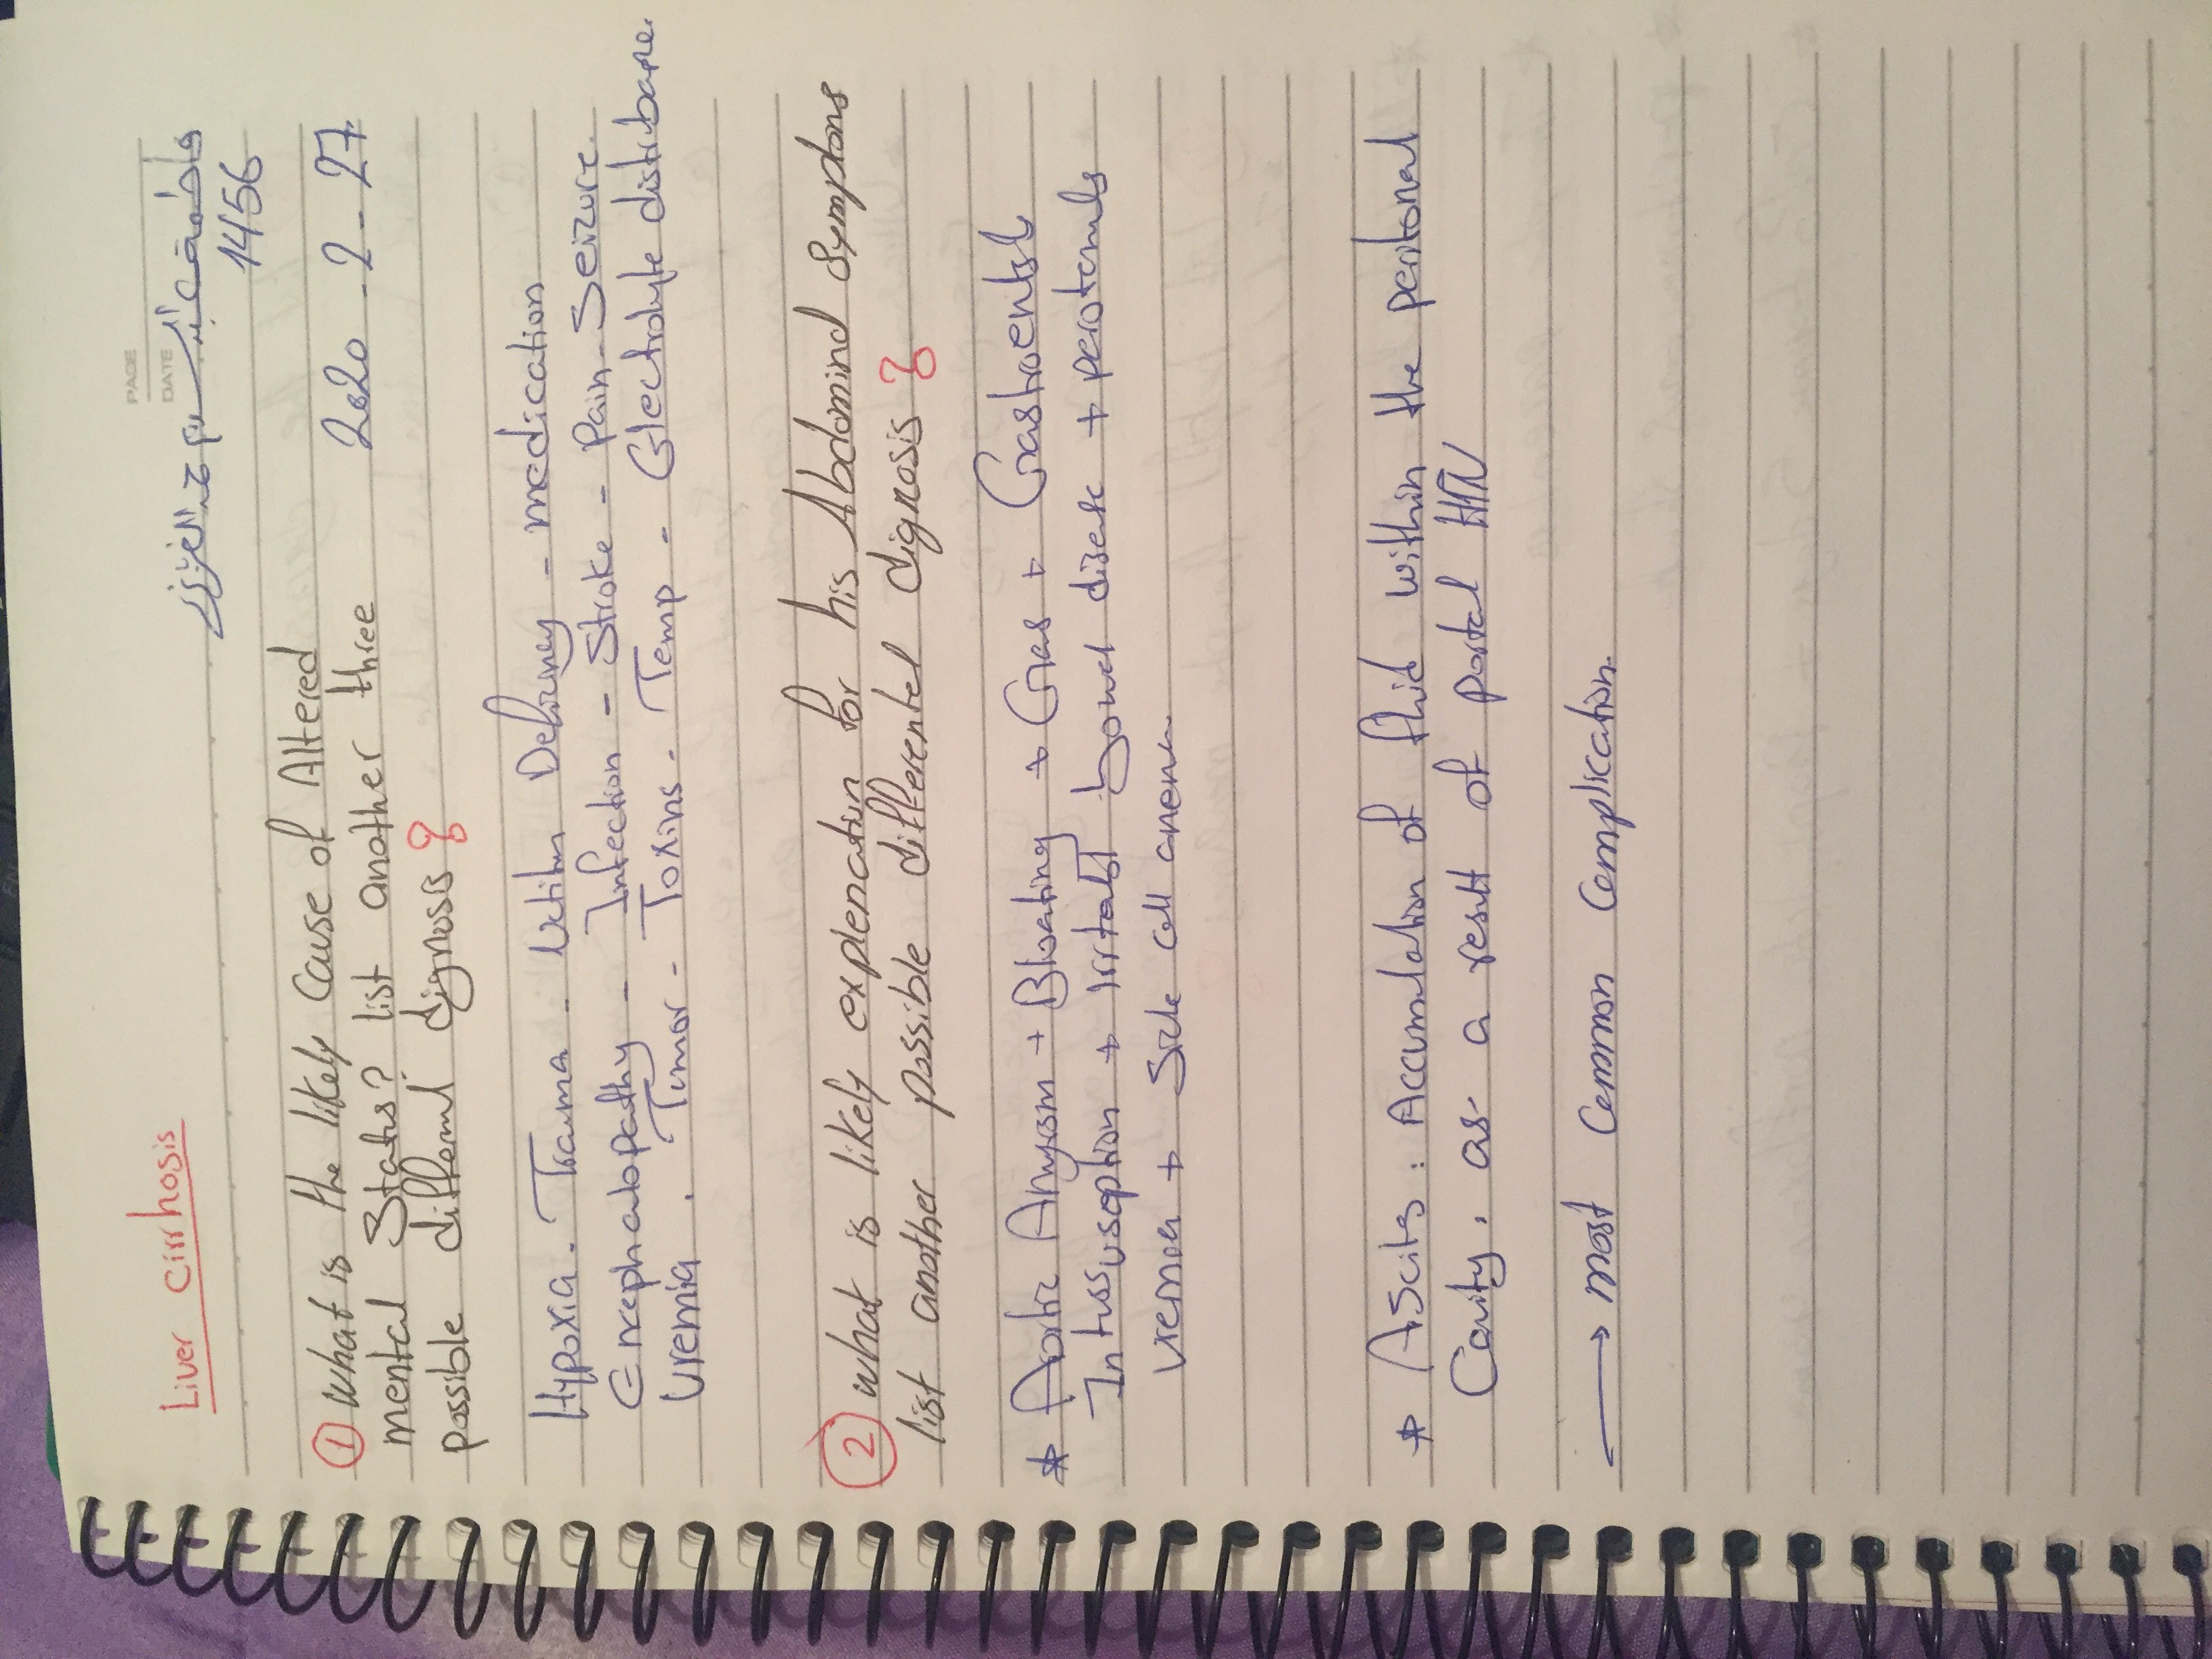 PAGE
DATE
فاطمة عبدالسلام عبدالعزيز
Liver Cirrhosis
14456
① What is the likely Cause of Altered
2020 - 2 - 27
mental Status? list another three
possible differntl dignosis ?
Hypoxia - Trauma - Vitimn Defciney - medication
Encephalopathy - Infection - Stroke - Pain - Seizure.
Uremia - Tumor - Toxins - Temp - Electrolyte distribance.
② what is likely explenation for his Abdominal Symptons
list another possible differentel dignosis ?
* Aortic Anyrsm + Bloating + Gas + Gastroentests
Intussusoption + irrtabl bowel diseas +
uremea + Sicle cell anemea
* Ascits : Accumulation of fluid within the peritonal
Cavity, as a result of portal HTN
→ most Common Complication.